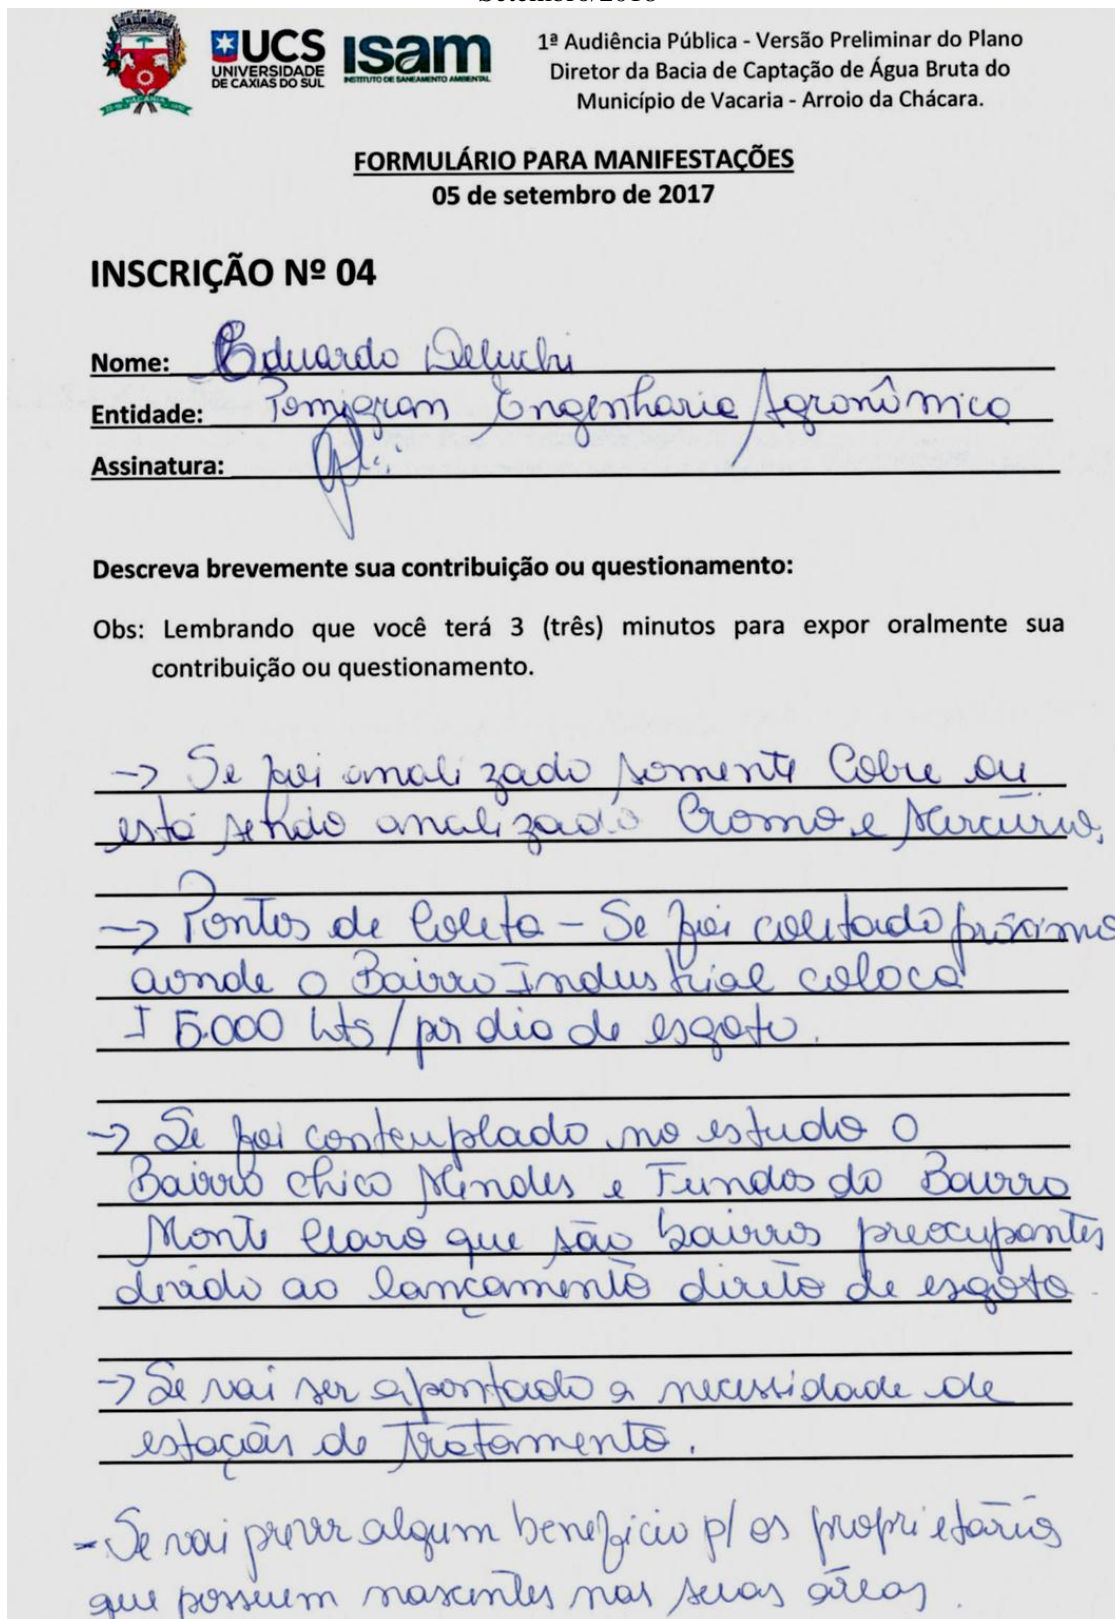 Setembro/2018
UCS
UNIVERSIDADE
DE CAXIAS DO SUL
ISam
INSTITUTO DE SANEAMENTO AMBIENTAL
VACARIA
1ª Audiência Pública - Versão Preliminar do Plano
Diretor da Bacia de Captação de Água Bruta do
Município de Vacaria - Arroio da Chácara.
FORMULÁRIO PARA MANIFESTAÇÕES
05 de setembro de 2017
INSCRIÇÃO Nº 04
Nome: Eduardo Deluchi
Entidade: Pomigran Engenharia Agronômica
Assinatura:
Descreva brevemente sua contribuição ou questionamento:
Obs: Lembrando que você terá 3 (três) minutos para expor oralmente sua
contribuição ou questionamento.
-> Se foi analizado somente Cobre ou
está sendo analizado Cromo e Mercúrio,
-> Pontos de Coleta - Se foi coletado próximo
aonde o Bairro Industrial coloca
± 5.000 lts/por dia de esgoto.
-> Se foi contemplado no estudo o
Bairro Chico Mendes e Fundos do Bairro
Monte Claro que são bairros preocupantes
devido ao lançamento direto de esgoto.
-> Se vai ser apontado a necessidade de
estação de Tratamento.
- Se vai prever algum benefício p/ os proprietários
que possuem nascentes nas suas áreas.